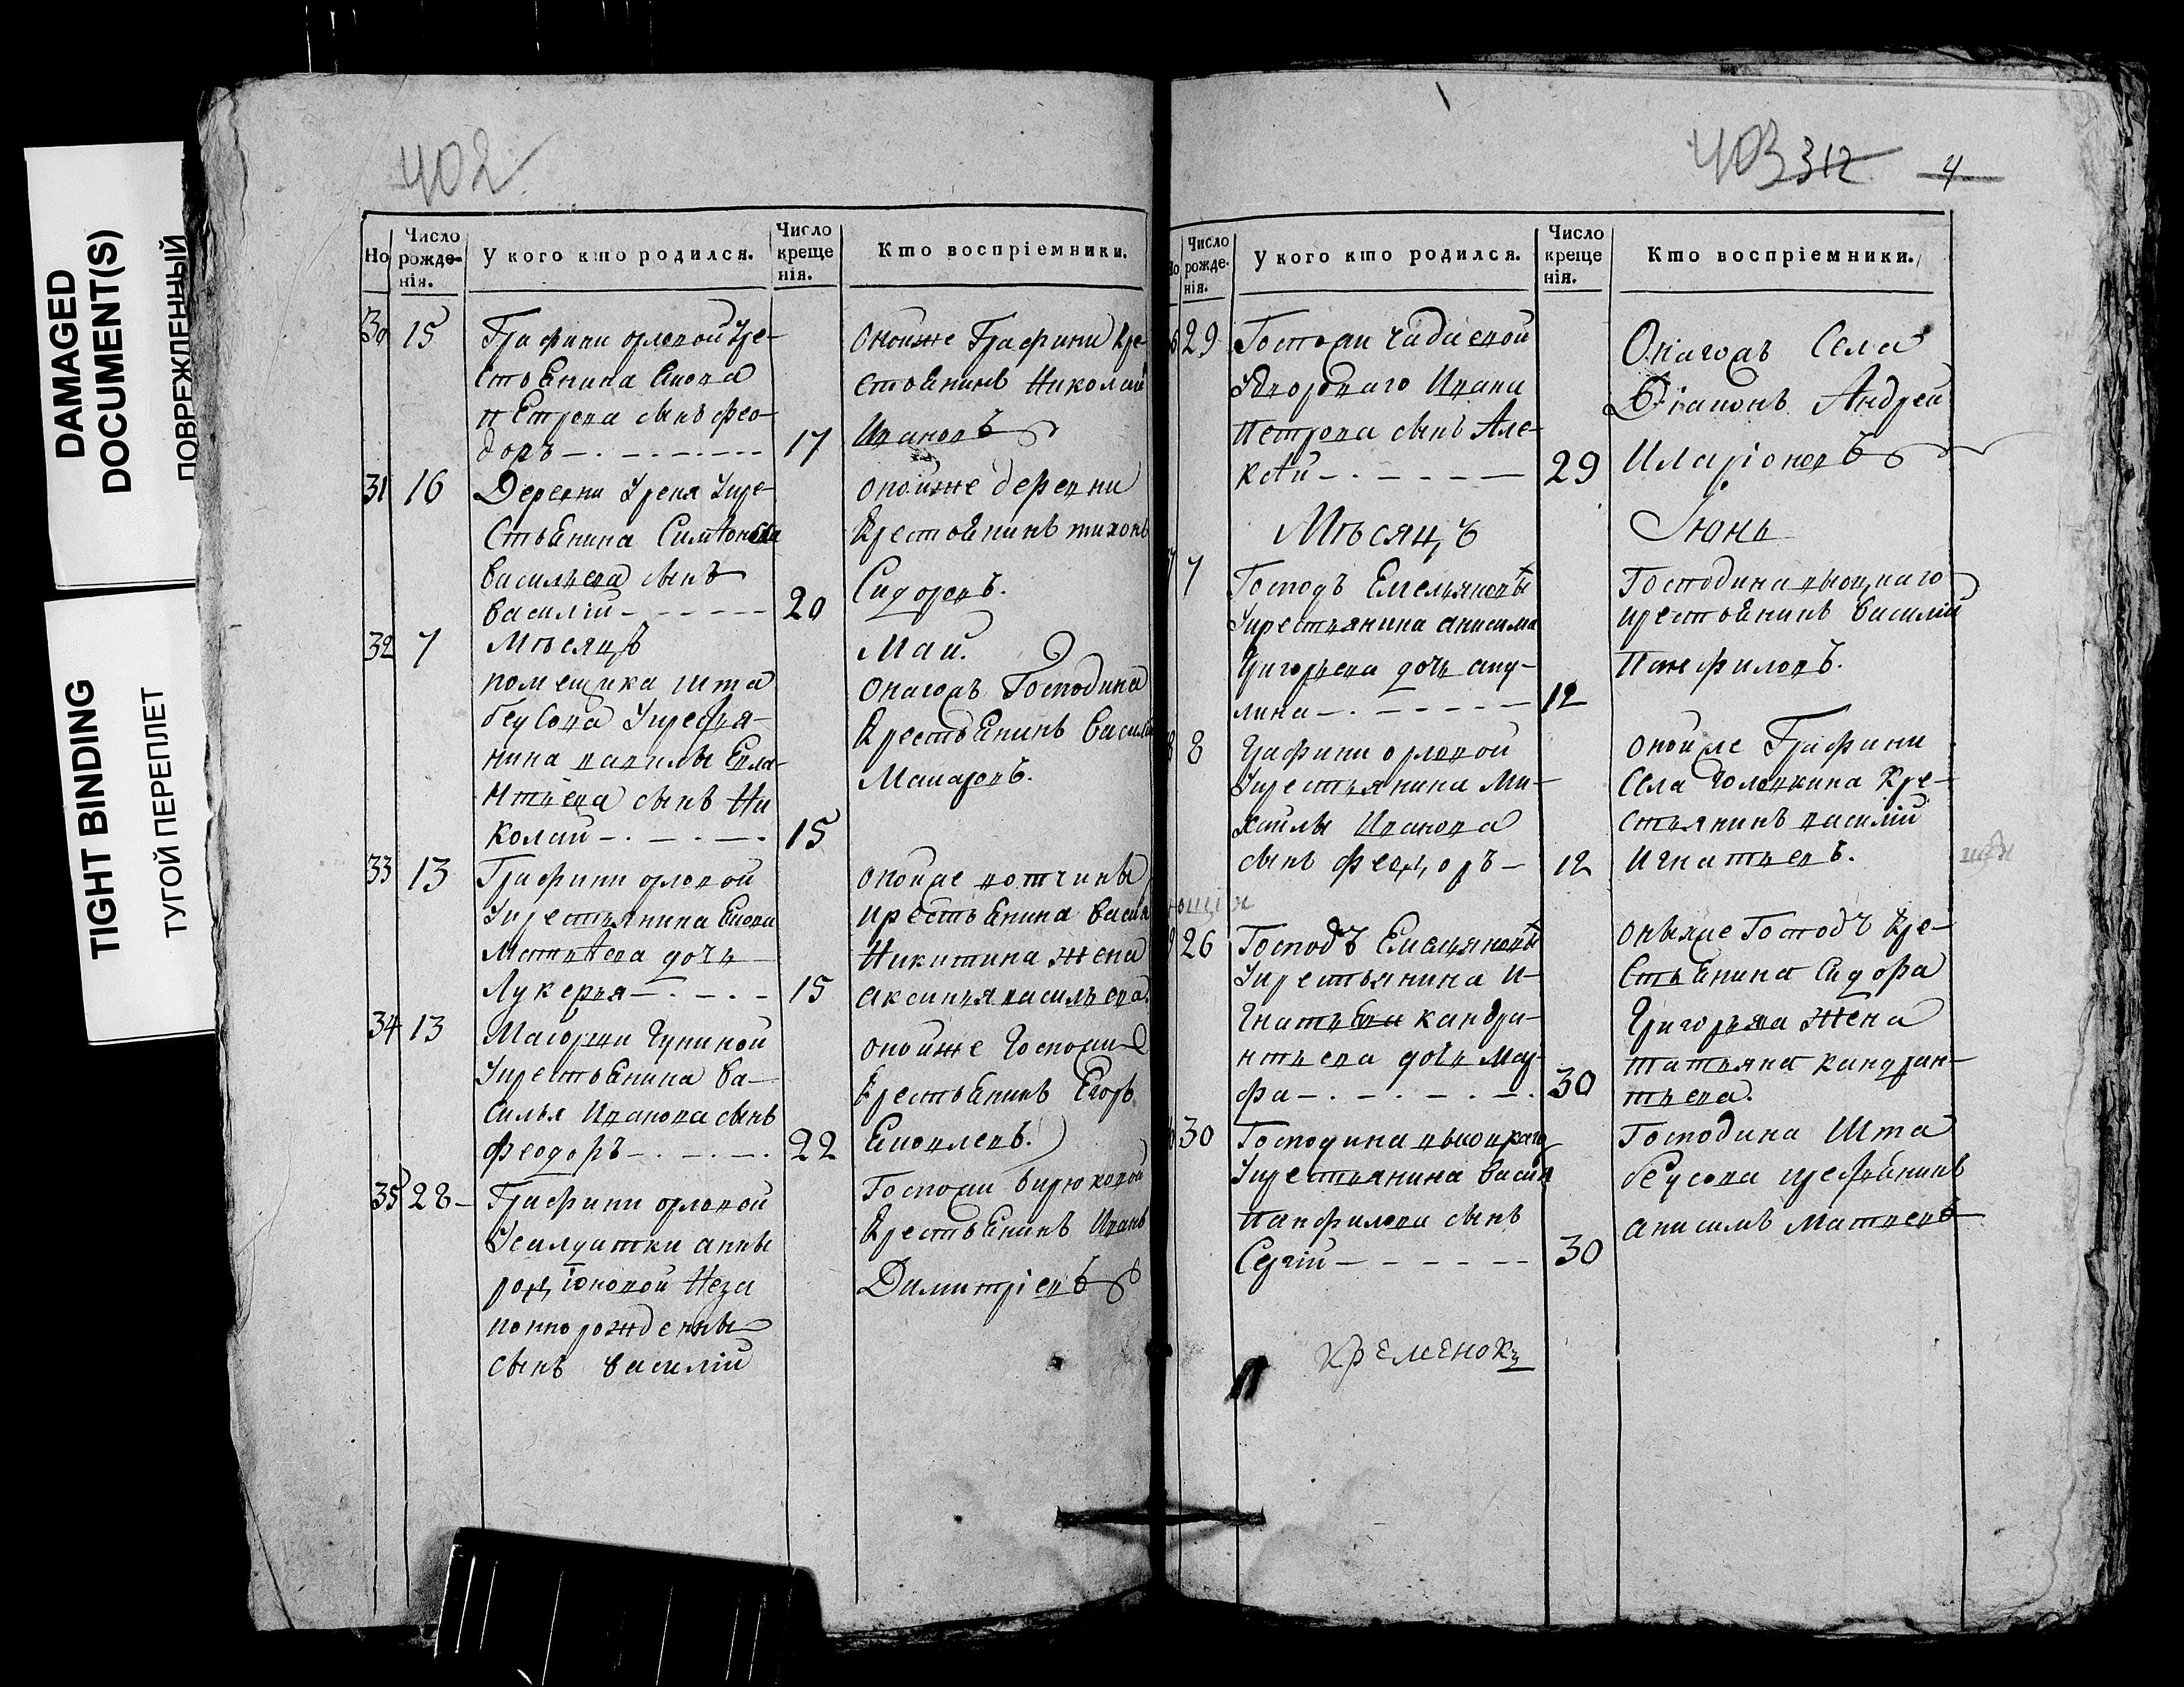 DAMAGED
DOCUMENT(S)
ПОВРЕЖДЕННЫЙ
TIGHT BINDING
ТУГОЙ ПЕРЕПЛЕТ
402
Но
Число рожденія.
У кого кто родился.
Число крещенія.
Кто воспріемники.
30 15 Графини орловой кре-
стьянина
петрова сынъ фео-
доръ 17
оной же Графини кре-
стьянинъ Николай
Ивановъ
31 16 Деревни Урена кре-
стьянина Симеона
васильева сынъ
василій 20
оной же деревни
крестьянинъ тихонъ
Сидоровъ.
32 7 Мѣсяцъ
Май.
помещика шта
беусова крестья-
нина вавилы Евла-
нтьева сынъ Ни
колай 15
онагожъ Господина
крестьянинъ василей
Макаровъ.
33 13 Графини орловой
крестьянина
Матвѣева дочь
Лукерья 15
оной же вотчины
крестьянина
Никитина жена
аксинья васильева.
34 13 Маіорши
крестьянина ва-
силья Иванова сынъ
феодоръ 22
оной же Госпожи
крестьянинъ Егоръ
35 28 Графини орловой
у салдатки анны
родіоновой неза
коннорожденны
сынъ василій
Госпожи бирюковой
крестьянинъ Иванъ
Димитріевъ
403 312 4
Число рожденія.
У кого кто родился.
Число крещенія.
Кто воспріемники.
29 Госпожи чадаевой
дворовага Ивана
петрова сынъ Але-
ксѣй 29
Онагожъ Села
Діаконъ Андрей
Иларіоновъ
Мѣсяцъ
Іюнь
7 Господъ Емельяновы
крестьянина анисима
Григорьева дочь аку-
лина 12
Господина
крестьянинъ василій
Панфиловъ.
8 Графини орловой
крестьянина Ми-
хайлы Иванова
сынъ феодоръ 12
оной же Графини
Села Головкина кре-
стьянинъ василій
Игнатьевъ.
26 Господъ Емельяновы
крестьянина И-
гнатья кандра-
нтьева дочь Мар-
фа 30
оныхже Господъ кре-
стьянина Сидора
Григорьева жена
татьяна кандран-
тьева.
30 Господина
крестьянина
панфилова сынъ
Сергій 30
Господина Шта
беусова крестьянинъ
анисимъ Матвеевъ
кременокъ